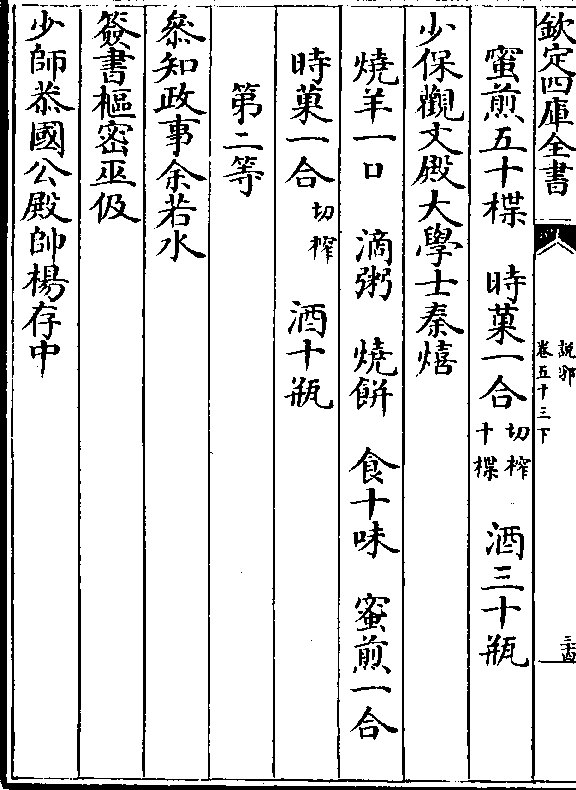 欽定四庫全書
說郛
卷五十三下
蜜煎五十楪　時菓一合 切榨十楪　酒三十瓶
少保觀文殿大學士秦熺
燒羊一口　滴粥　燒餅　食十味　蜜煎一合
時菓一合 切榨　酒十瓶
第二等
叅知政事余若水
簽書樞密巫伋
少師恭國公殿帥楊存中